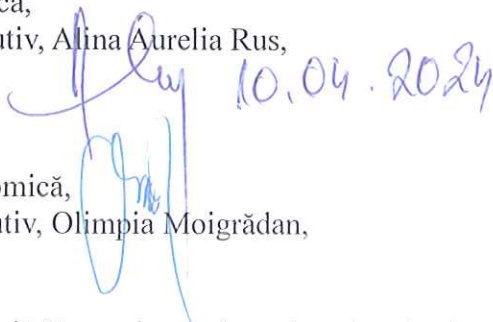 că,
utiv, Alina Aurelia Rus,
10.04.2024
omică,
utiv, Olimpia Moigrădan,